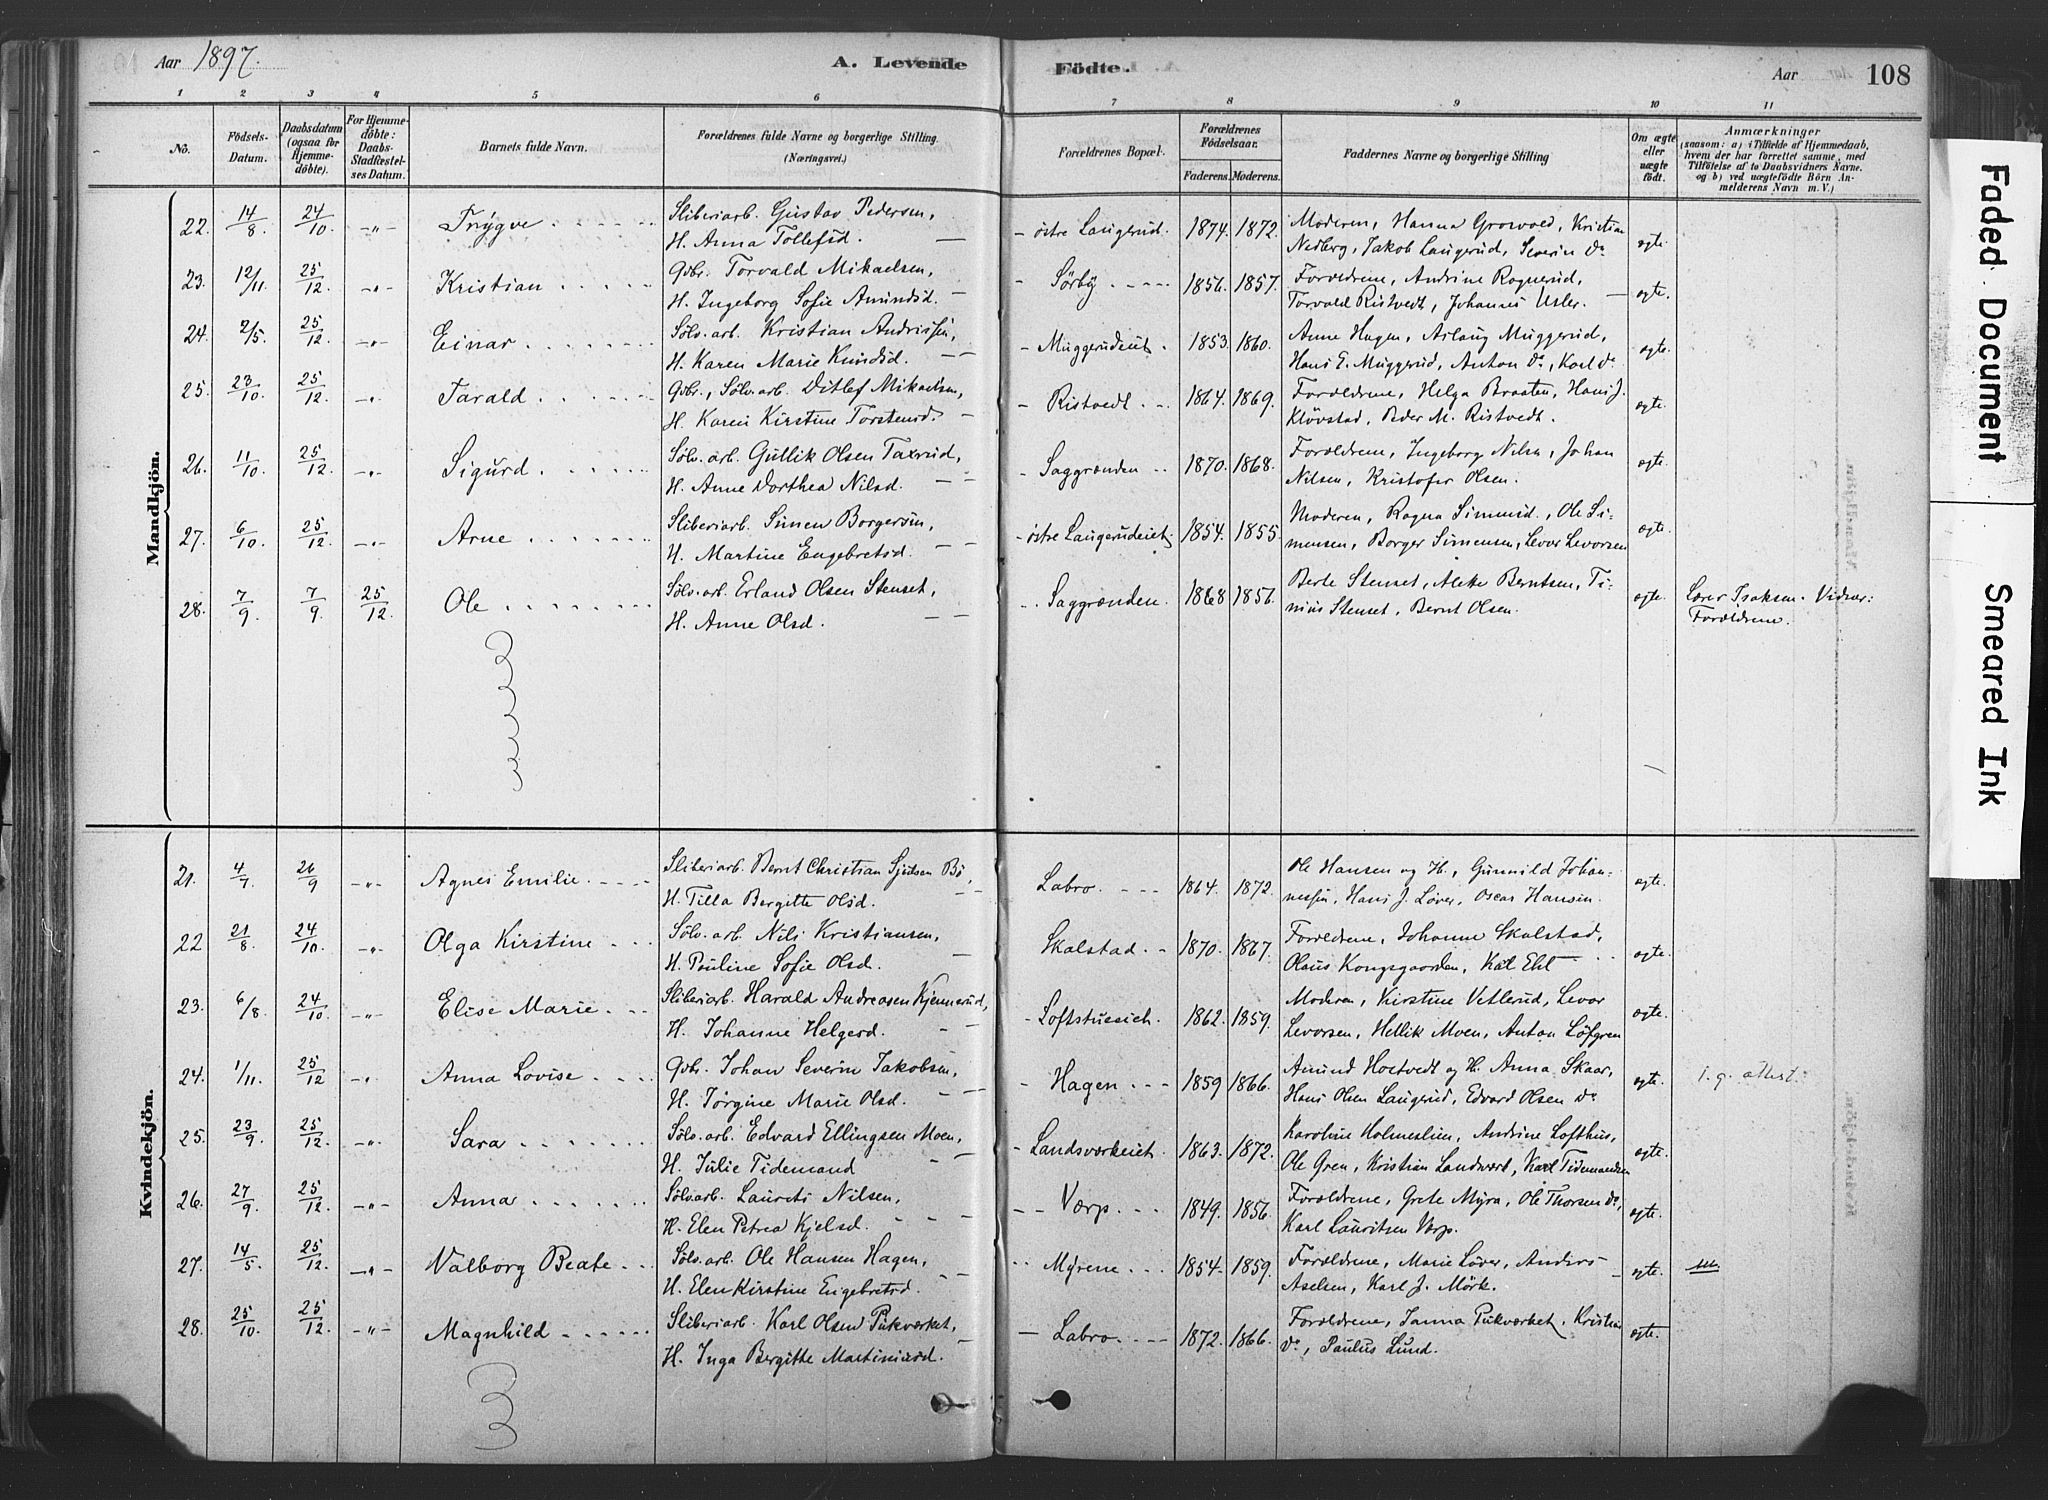 Aar 1897. A. Levende Födte. Aar 108
1 2 3 4 5 6 7 8 9 10 11
No. Födsels-Datum. Daabsdatum (ogsaa for Hjemmedöbte). For Hjemmedöbte: Daabs-Stadfæstelses Datum. Barnets fulde Navn. Forældrenes fulde Navne og borgerlige Stilling. (Næringsvei.) Forældrenes Bopæl. Forældrenes Födselsaar. Faderens. Moderens. Faddernes Navne og borgerlige Stilling Om ægte eller uægte födt. Anmærkninger (saasom: a) i Tilfælde af Hjemmedaab, hvem der har forrettet samme, med Tilföielse af to Daabsvidners Navne, og b) ved uægtefödte Börn Anmelderens Navn m. V.)
Mandkjön.
22. 14/8. 24/10. -"- Trygve Sliberiarb. Gustav Pedersen, - östre Laugerud. 1874. 1872. Moderen, Hanna Grosvold, Kristian ægte.
H. Anna Tollefsd. Nedberg, Jakob Laugerud, Severin do
23. 12/11. 25/12. -"- Kristian Gbr. Torvald Mikaelsen, - Sörby 1856. 1857. Forældrene, Andrine Rognerud, ægte.
H. Ingeborg Sofie Amundsd. Torvald Ristvedt, Johannes Usler.
24. 2/5. 25/12. -"- Einar Sölv.arb. Kristian Andreassen, - Muggerudeiet. 1853. 1860. Anne Hagen, Aslaug Muggerud, ægte.
H. Karen Marie Knudsd. Hans E. Muggerud, Anton do, Karl do
25. 23/10. 25/12. -"- Tarald Gbr., Sölv.arb. Ditlef Mikaelsen, - Ristvedt. 1864. 1869. Forældrene, Helga Braaten, Hans J. ægte.
H. Karen Kirstine Torstensd. Klövstad, Peder M. Ristvedt.
26. 11/10. 25/12. -"- Sigurd. Sölv.arb. Gullik Olsen Taxrud, - Saggrænden 1870. 1868. Forældrene, Ingeborg Nilsen, Johan ægte.
H. Anne Dorthea Nilsd. Nilsen, Kristofer Olsen.
27. 6/10. 25/12. -"- Arne Sliberiarb. Simen Borgersen, - östre Laugerudeiet. 1854. 1855. Moderen, Ragna Simensd., Ole Si- ægte.
H. Martine Engebretsd. mensen, Borger Simensen, Levor Levorsen
28. 7/9. 7/9. 25/12. Ole Sölv.arb. Erland Olsen Stenset, Saggrænden. 1868 1856. Berte Stenset, Aleke Berntsen, Ti- ægte. Lærer Isaksen. Vidner:
H. Anne Olsd. nius Stenset, Bernt Olsen. Forældrene.
Kvindekjön.
21. 4/7. 26/9 -"- Agnes Emilie Sliberiarb. Bernt Christian Sjulsen Bö, Labro. 1864. 1872. Ole Hansen og H., Gunnild Johan- ægte.
H. Tilla Bergitte Olsd. nessen, Hans J. Löver, Oscar Hansen.
22 21/8. 24/10. -"- Olga Kirstine Sölv.arb. Nils Kristiansen, Skalstad 1870. 1867. Forældrene, Johanne Skalstad, ægte.
H. Pauline Sofie Olsd. Olaus Kongsgaarden,
23. 6/8 24/10. -"- Elise Marie Sliberiarb. Harald Andreasen Kjennerud, - Loftstueeich. 1862. 1859. Moderen, Kirstine Vetlerud, Levor ægte.
H. Johanne Helgesd. Levorsen, Hellik Moen, Anton Löfgren
24. 1/11. 25/12 -"- Anna Lovise Gbr. Johan Severin Jakobsen, - Hagen 1859 1866. Amund Hostvedt og H. Anna Skaar, ægte. 1. g. attest.
H. Jörgine Marie Olsd. Hans Olsen Laugerud, Edvard Olsen do
25. 23/9. 25/12. -"- Sara Sölv.arb. Edvard Ellingsen Moen, - Landsværkeiet. 1863. 1872. Karoline Holmeslien, Andrine Lofthus, ægte.
H. Julie Tidemand Ole Gren, Kristian Landværk, Karl Tidemandsen
26. 27/9. 25/12. -"- Anna Sölv.arb. Laurits Nilsen, Værp. 1849. 1856. Forældrene, Grete Myra, Ole Thorsen do, ægte.
H. Elen Petrea Kjelsd. Karl Lauritsen Værp.
27. 14/5. 25/12. -"- Valborg Beate Sölv.arb. Ole Hansen Hagen, Myrene 1854. 1859. Forældrene, Marie Löver, Anders ægte.
H. Elen Kirstine Engebretsd. Axelsen, Karl J. Mörk.
28. 25/10. 25/12. -"- Magnhild Sliberiarb. Karl Olsen Pukværket, Labro. 1872. 1866. Forældrene, Janna Pukværket, Kristian ægte.
H. Inga Bergitte Martiniusd. do, Paulus Lund.
Faded Document
Smeared Ink